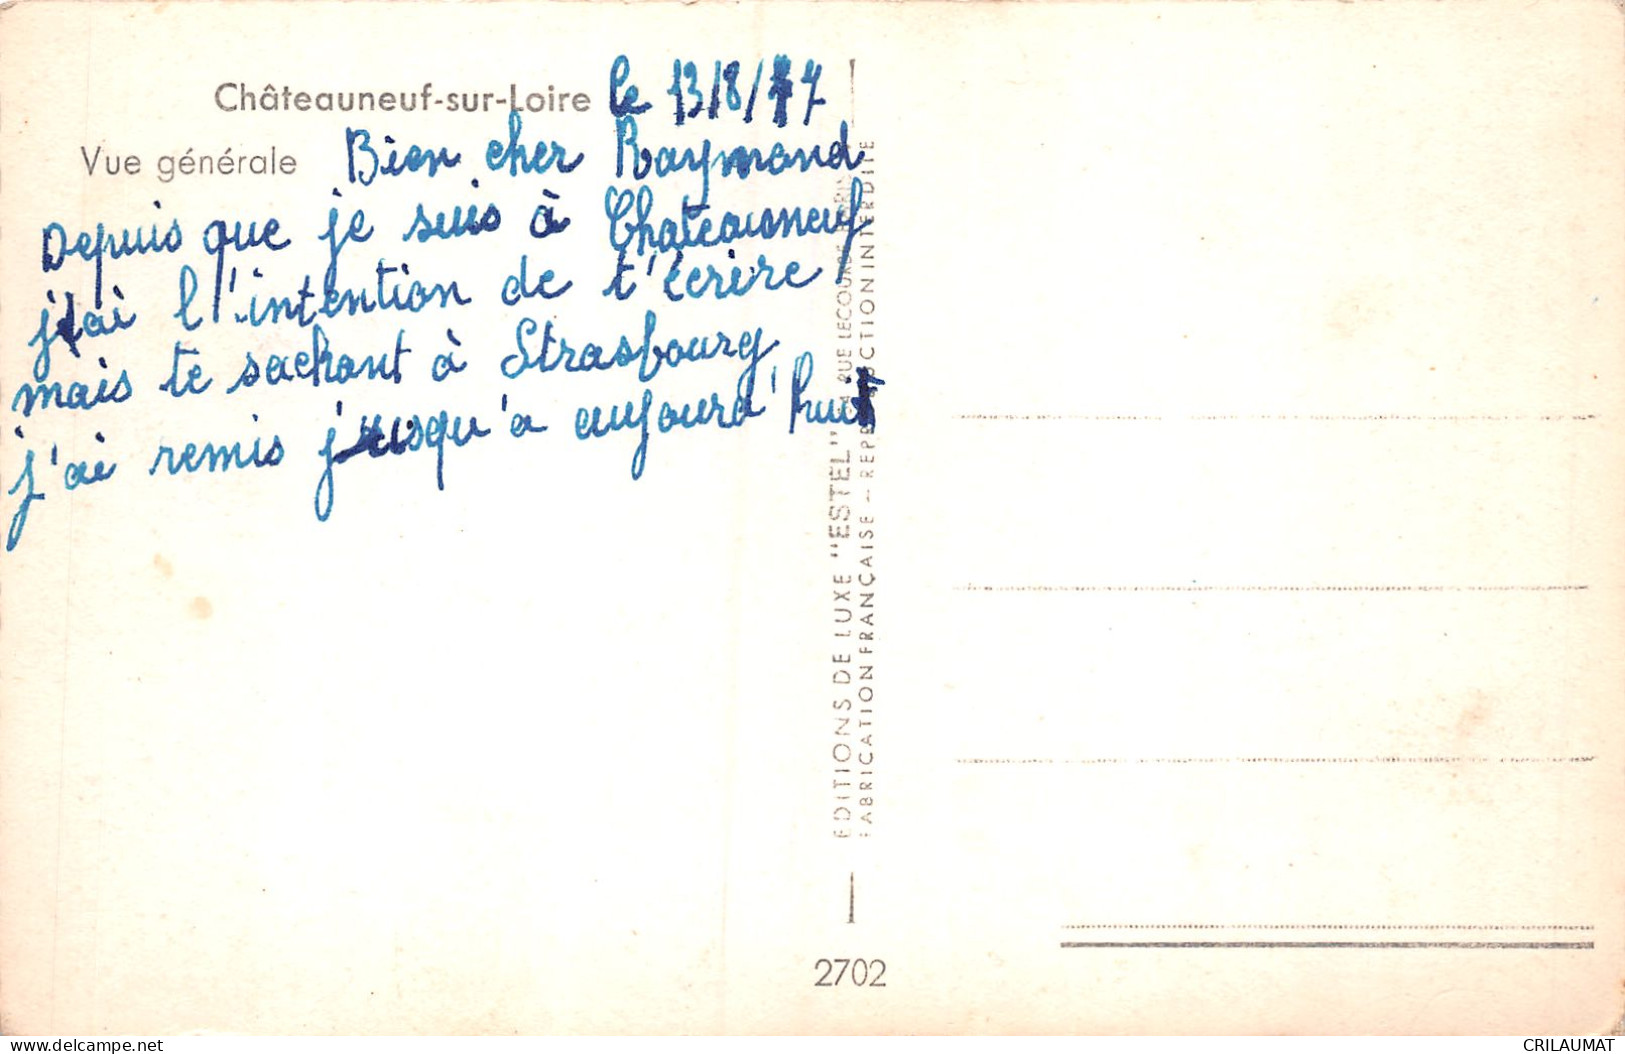 Châteauneuf-sur-Loire le 13/8/47
Vue générale Bien cher Raymond
Depuis que je suis à Chateauneuf
j'ai l'intention de t'écrire
mais te sachant à Strasbourg
j'ai remis jusqu'à aujourd'hui
EDITIONS DE LUXE "ESTEL" RUE LECOURBE
FABRICATION FRANÇAISE - REPRODUCTION INTERDITE
2702
www.delcampe.net
CRILAUMAT